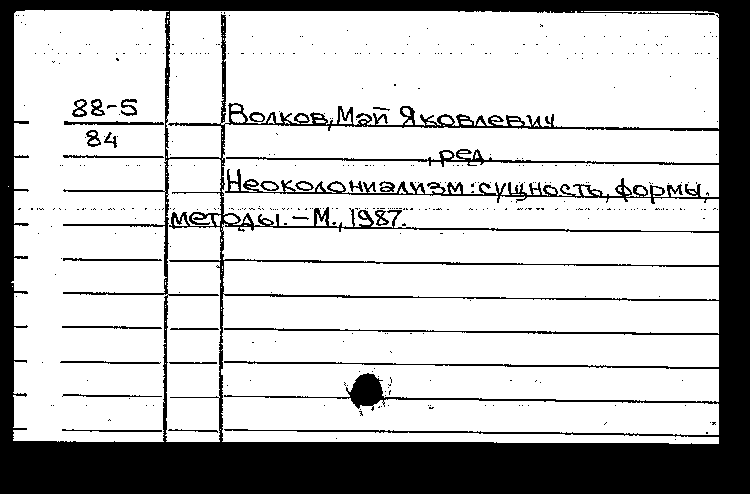 88-5 Волков, Мэй Яковлевич
84 , ред.
Неоколониализм: сущность, формы,
методы. – М., 1987.